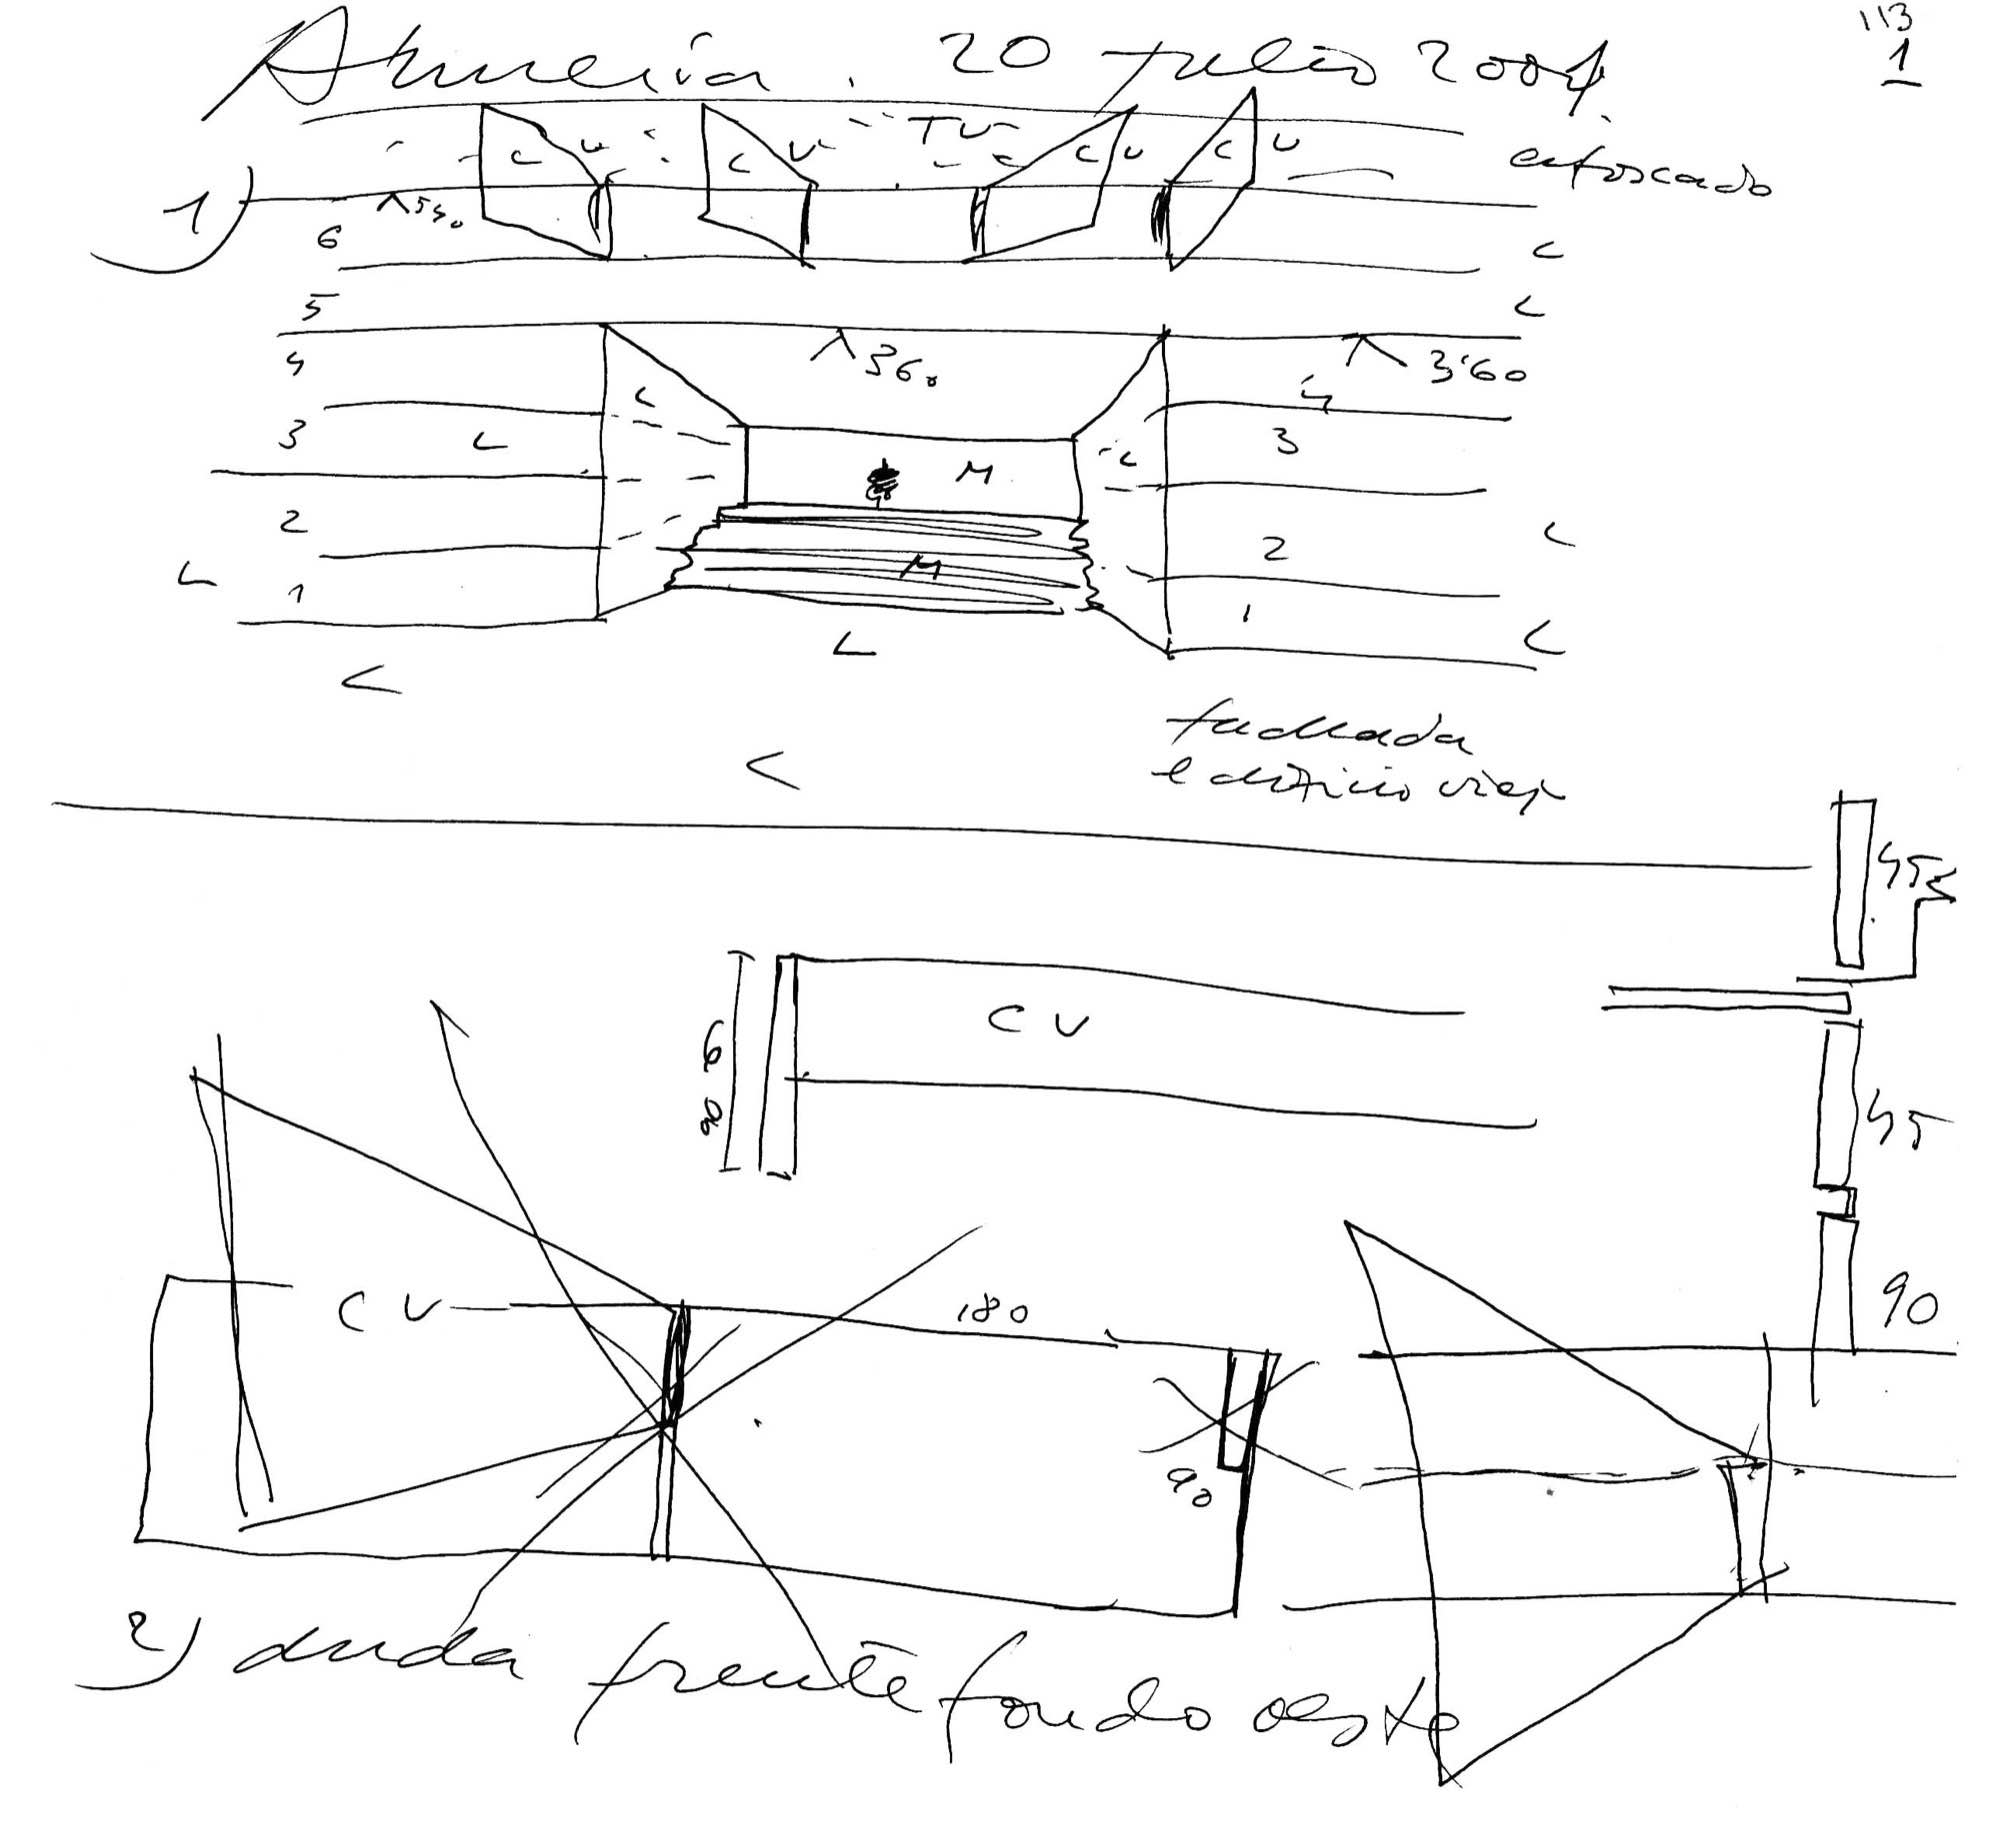 113
1
Almería. 20 Julio 2004.
C V C V TV C V C V
enfoscado
1)
5'40
6 C
5 C
4 360 3'60
C 4
3 C C 3
M
2 C
M 2
C 1 1 C
C
C
C
fachada
edificio viejo
45
CV
90
45
CV 180
90
90
2) duda frente fondo oeste